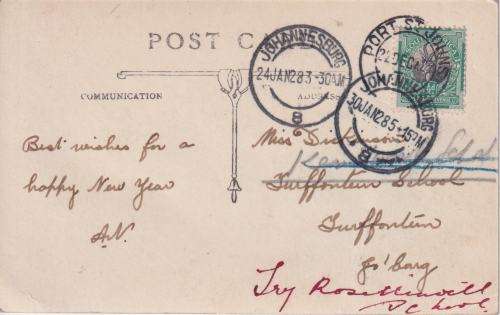 POST CA
COMMUNICATION
ADDRESS
JOHANNESBURG
24JAN28 3-30AM
8
PORT ST JOHNS
JOHANNESBURG
30JAN28 5-15PM
Best wishes for a
happy New Year
A.N.
Miss Dickenson
Turffontein School
Turffontein
Jo'burg
Try Rosettenville
School.